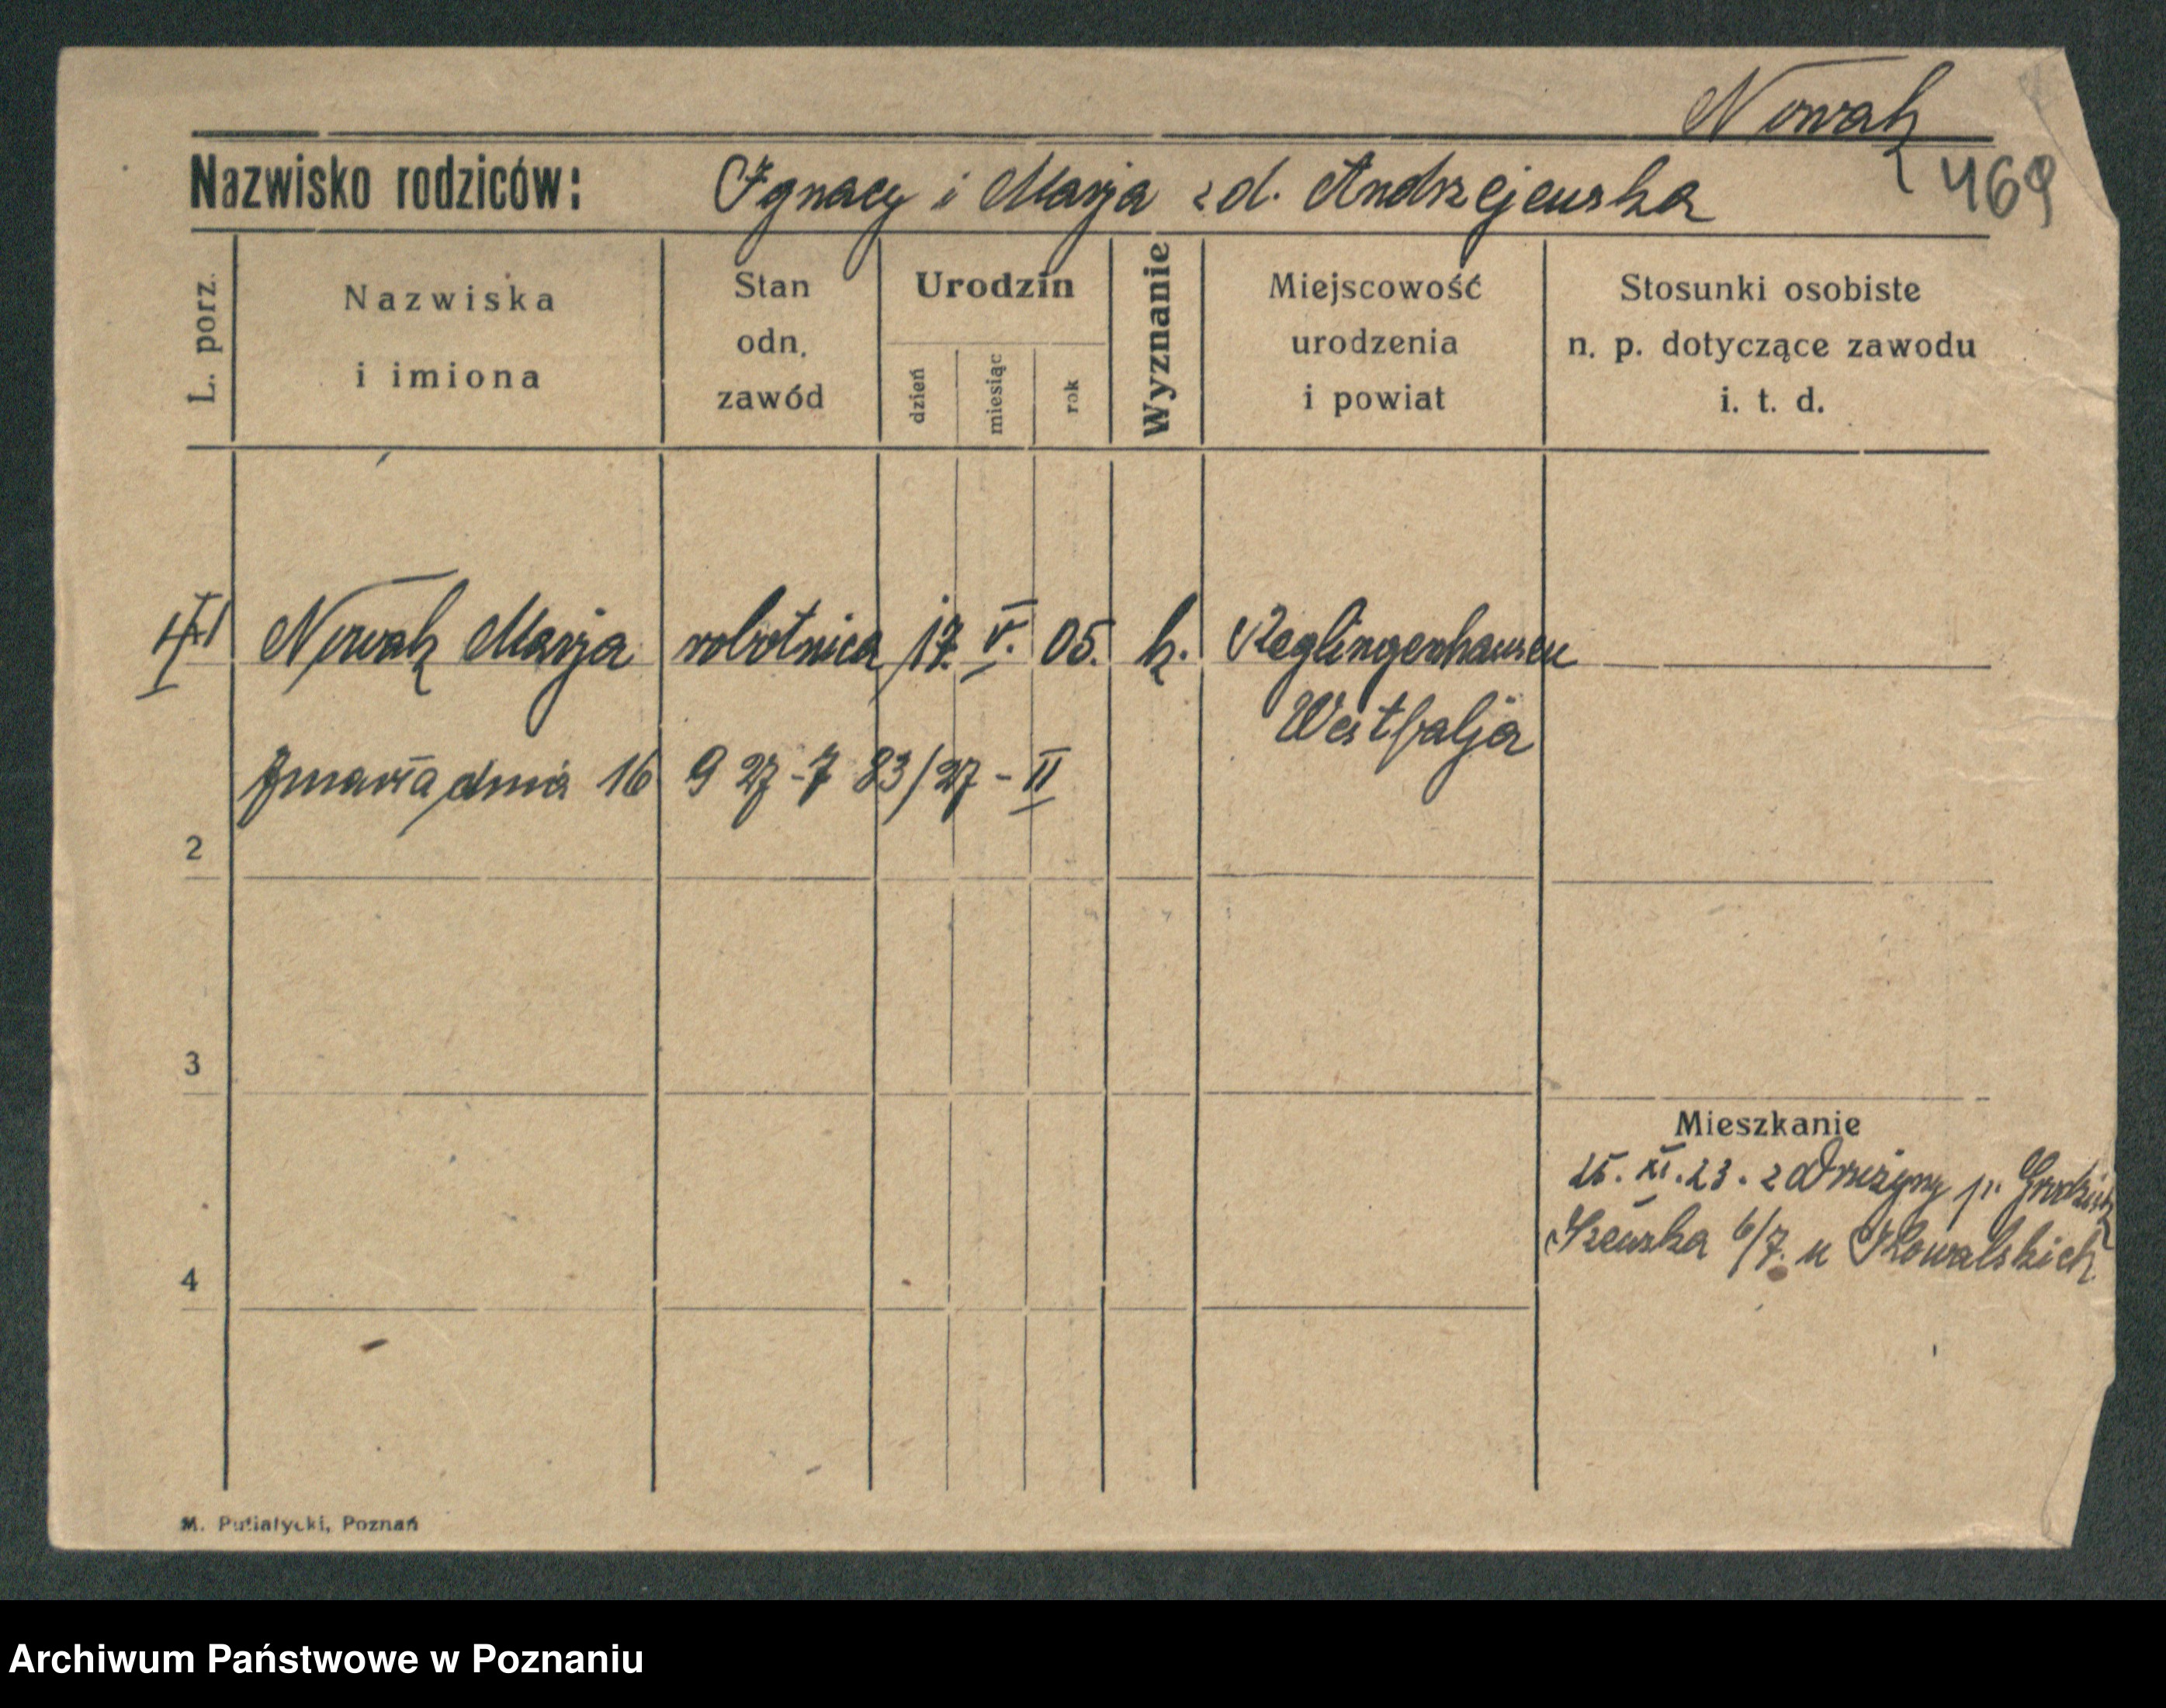 Nowak
469
Nazwisko rodziców: Ignacy i Marja zd. Andrzejewska
L. porz.
Nazwiska
i imiona
Stan
odn.
zawód
Urodzin
dzień
miesiąc
rok
Wyznanie
Miejscowość
urodzenia
i powiat
Stosunki osobiste
n. p. dotyczące zawodu
i. t. d.
Nowak Marja robotnica 17. V. 05. k. Reglingenhausen
Westfalja
Zmarła dnia 16 9 27 - 7 83/27 - II
2
3
4
Mieszkanie
15. XI. 23. z p. Grodzisk
6/7. u Kowalskich
M. Putiatycki, Poznań
Archiwum Państwowe w Poznaniu